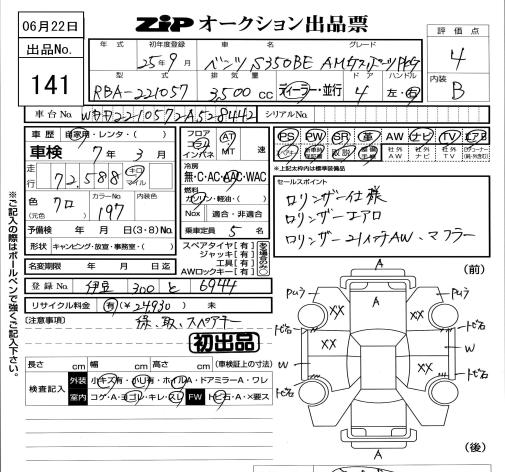 06月22日
ZiP オークション出品票
出品No.
141
評価点
4
内装
B
年式 初年度登録 車名 グレード
25年9月 ベンツ S350BE AMGスポーツPKG
型式 排気量 ドア ハンドル
RBA-221057 3,500cc ディーラー・並行 4 左・右
車台No. WDD221057-2A528442 シリアルNo.
車歴 自家用・レンタ・( )
車検 7年 3月
走行 72,588 キロ マイル
色 クロ (元色) カラーNo. 197 内装色
予備検 年 月 日(3・8)No.
形状 キャンピング・放宣・事務室・( )
名変期限 年 月 日迄
フロア コラム インパネ
AT MT 速
冷房
無・C・AC・AAC・WAC
燃料
ガソリン・軽油・( )
Nox 適合・非適合
乗車定員 5 名
スペアタイヤ【有】
ジャッキ【有】
工具【有】
AWロックキー【有】
ある場合のみ○
PS PW SR 革 AW ナビ TV エアB
社外AW 社外ナビ 社外TV
取説
*上記太枠内は標準装備品
セールスポイント
ロリンザー仕様
ロリンザーエアロ
ロリンザー21インチAW、マフラー
登録No. 伊豆 300 と 6944
リサイクル料金 有(¥24,930) 未
(注意事項) 保、取、スペアキー
初出品
長さ cm 幅 cm 高さ cm (車検証上の寸法)
検査記入 外装 小キズ有・小U有・ホイルA・ドアミラーA・ワレ
室内 コゲ・A・ヨゴレ・キレ・スレ FW トビ石・A・×要ス
※ご記入の際はボールペンで強くご記入下さい。
(前)
A
Pぬり A Pぬり
XX XX
トビ石 トビ石
W XX W
トビ石 トビ石
A
(後)